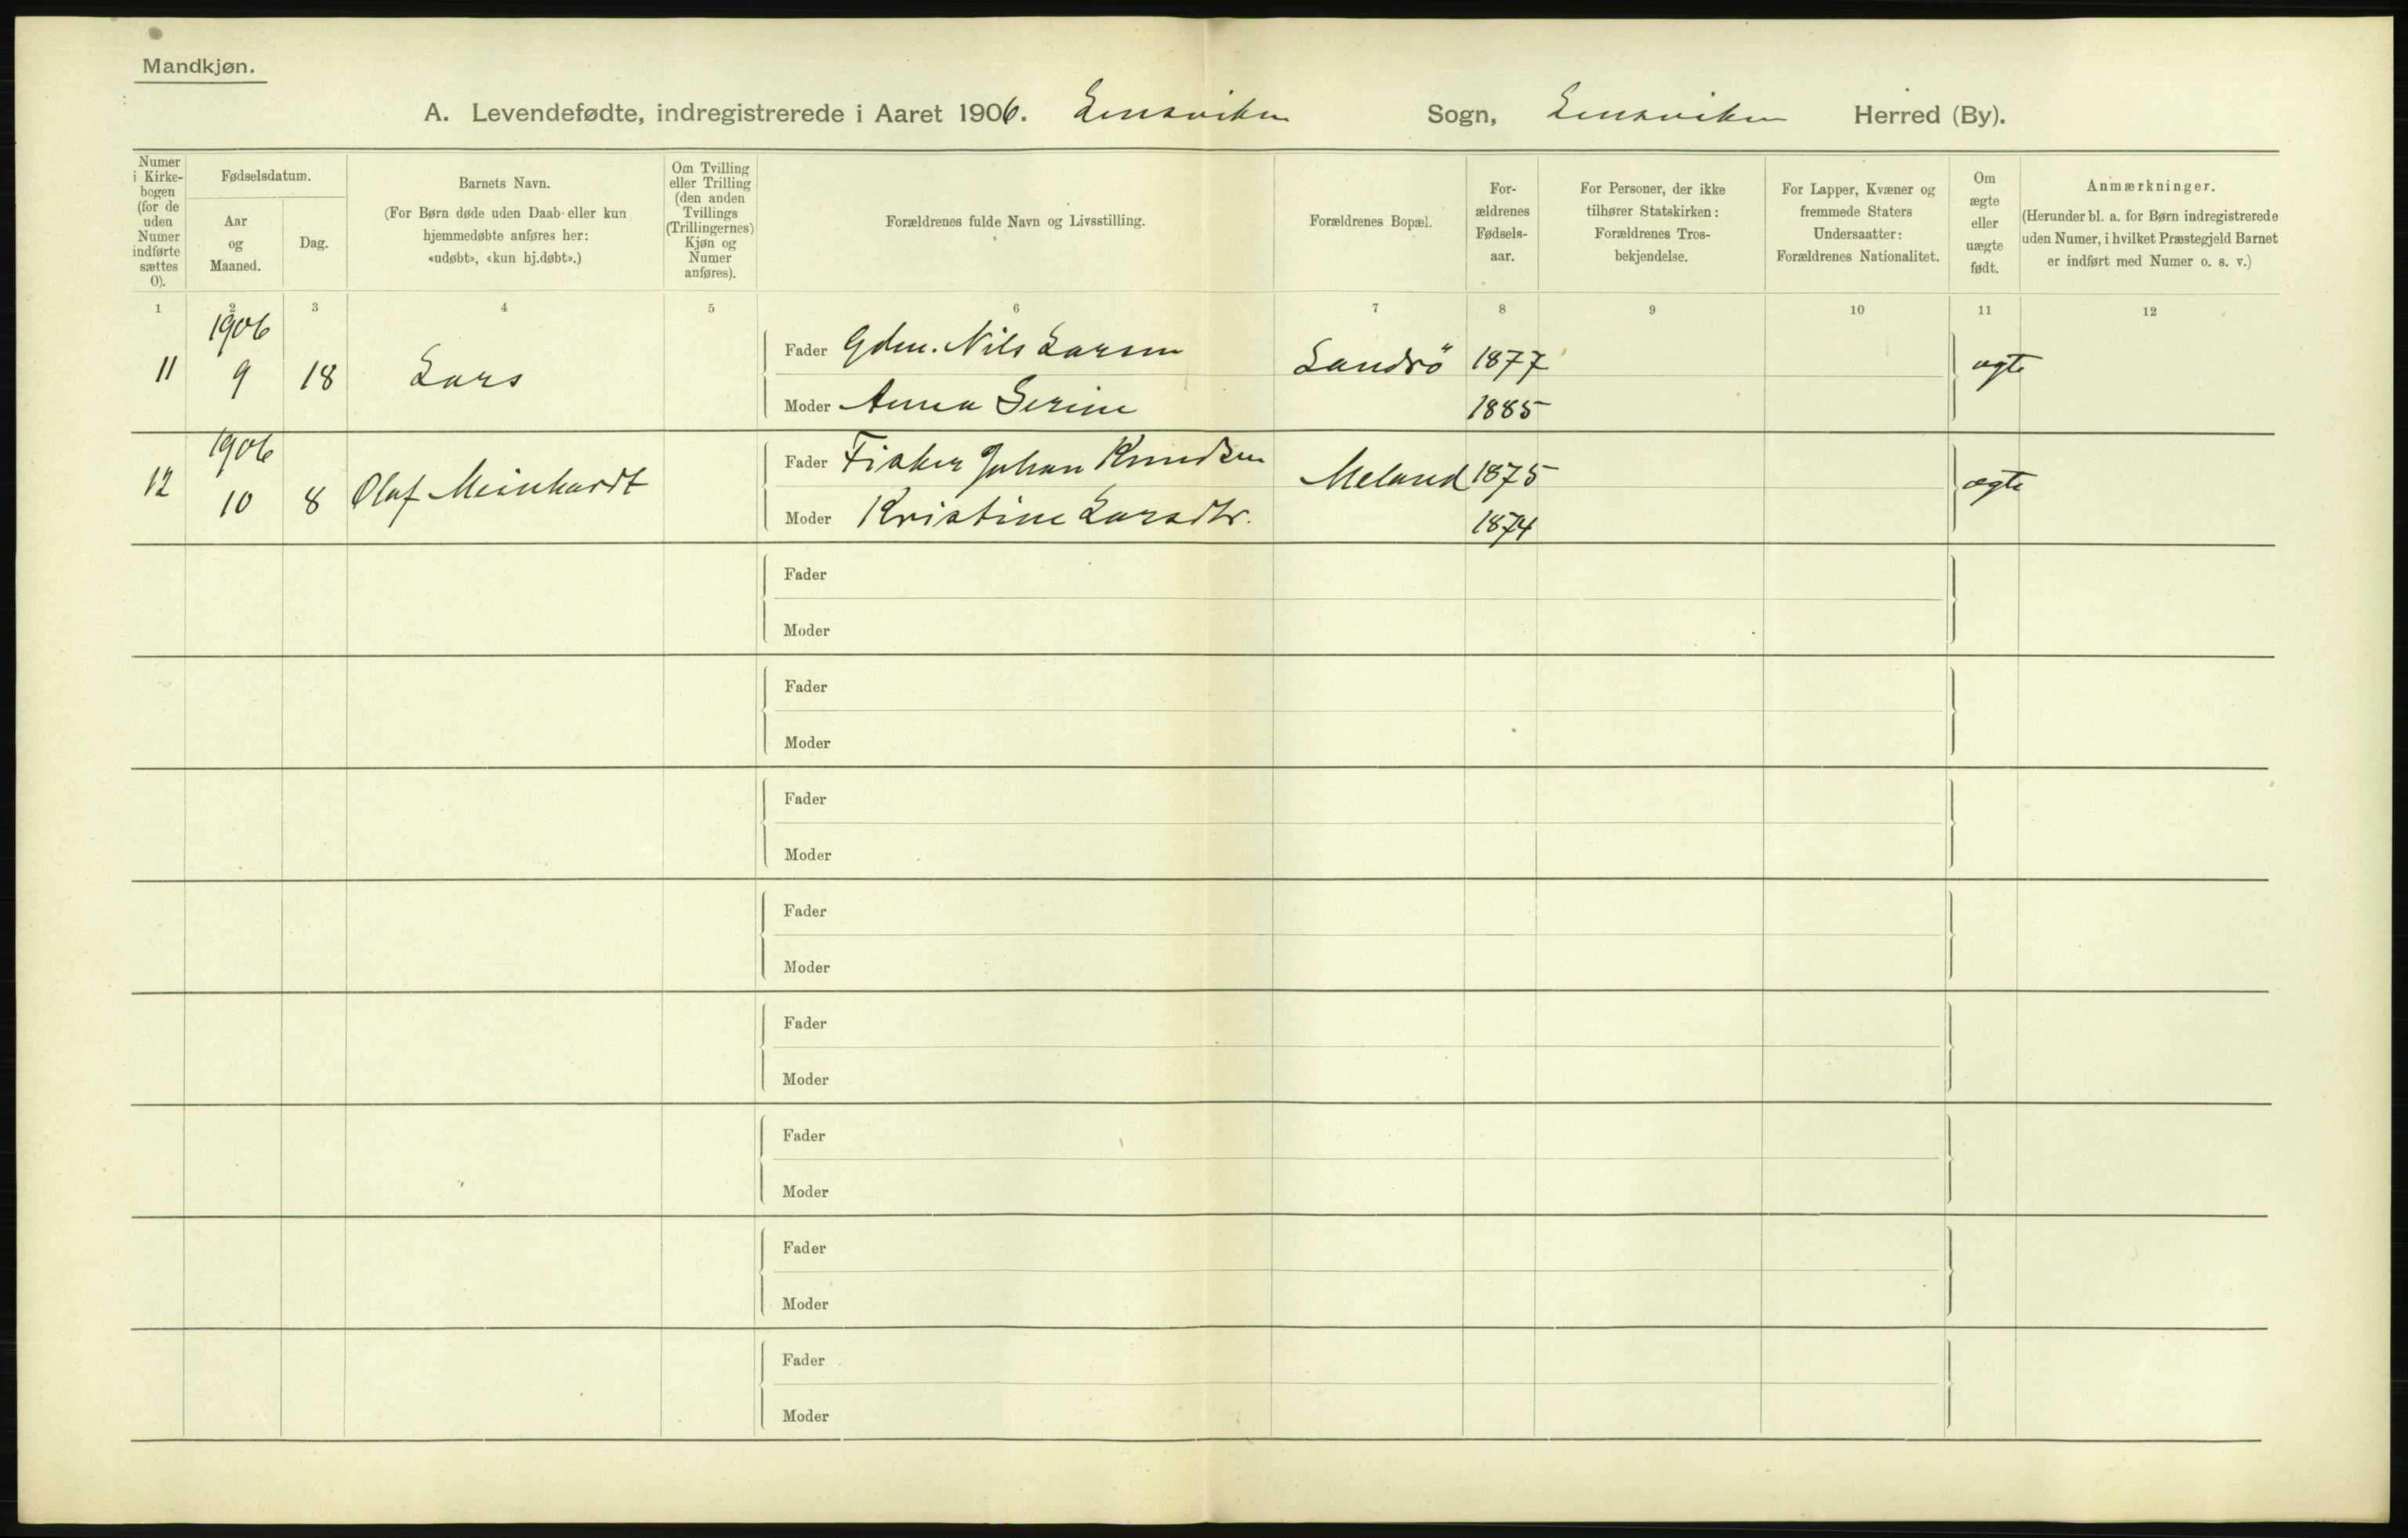 Mandkjøn.
A. Levendefødte, indregistrerede i Aaret 1906. Lensviken Sogn, Lensviken Herred (By).
Numer i Kirkebogen (for de uden Numer indførte sættes 0).
Fødselsdatum.
Aar og Maaned.
Dag.
Barnets Navn.
(For Børn døde uden Daab eller kun hjemmedøbte anføres her: «udøbt», «kun hj.døbt».)
Om Tvilling eller Trilling (den anden Tvillings (Trillingernes) Kjøn og Numer anføres).
Forældrenes fulde Navn og Livsstilling.
Forældrenes Bopæl.
Forældrenes Fødselsaar.
For Personer, der ikke tilhører Statskirken: Forældrenes Trosbekjendelse.
For Lapper, Kvæner og fremmede Staters Undersaatter: Forældrenes Nationalitet.
Om ægte eller uægte født.
Anmærkninger.
(Herunder bl. a. for Børn indregistrerede uden Numer, i hvilket Præstegjeld Barnet er indført med Numer o. s. v.)
1 2 3 4 5 6 7 8 9 10 11 12
1906
11 9 18 Lars Fader Gdm. Nils Larsen Landrö 1877 ægte
Moder Anna Serine 1885
1906
12 10 8 Olaf Meinhardt Fader Fisker Johan Knudsen Meland 1875 ægte
Moder Kristine Larsdtr. 1874
Fader
Moder
Fader
Moder
Fader
Moder
Fader
Moder
Fader
Moder
Fader
Moder
Fader
Moder
Fader
Moder